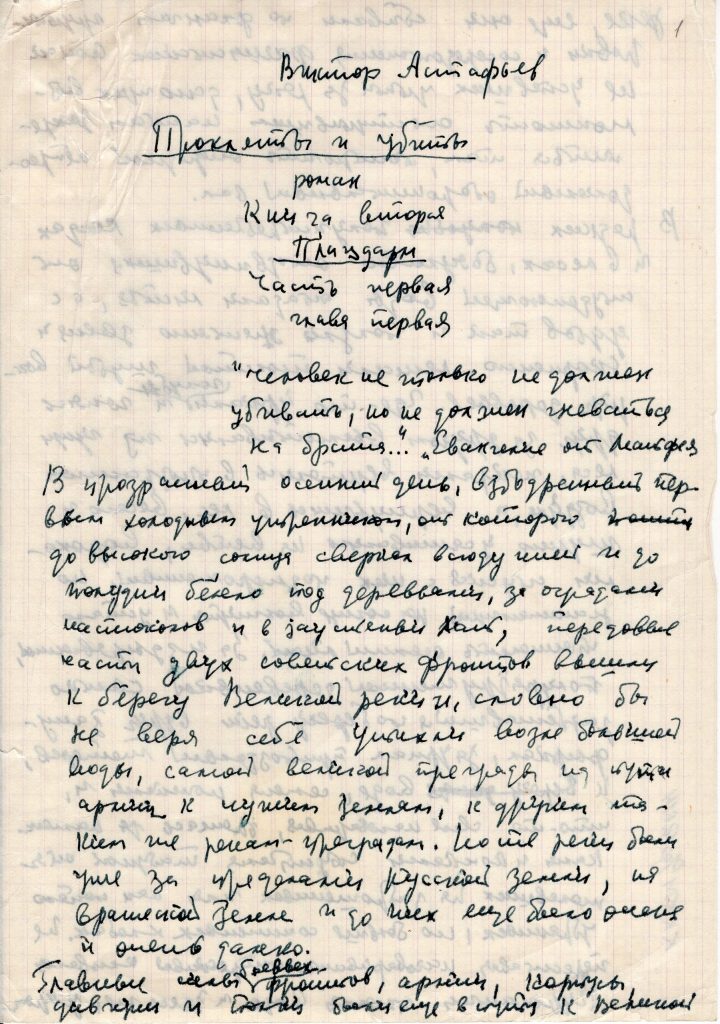 1
Виктор Астафьев
Прокляты и убиты
роман
Книга вторая
Плацдарм
Часть первая
глава первая
"Человек не только не должен
убивать, но не должен гневаться
на брата..." „Евангелие от Матфея
В прозрачный осенний день, взбодренный пер-
вым холодным утренником, от которого
до высокого солнца сверкал всюду иней и до
полудня белело под деревьями, за оградами
частоколов и в хат, передовые
части двух советских фронтов вышли
к берегу Великой реки и, словно бы
не веря себе утихли возле большой
воды, самой великой преграды на пути
армии к чужим землям, к другим та-
ким же рекам-преградам. Но те реки были
уже за пределами русской земли, на
вражеской земле и до них еще было очень
и очень далеко.
Главные силы боевых фронтов, армии, корпусы,
дивизии и были еще в пути к Великой